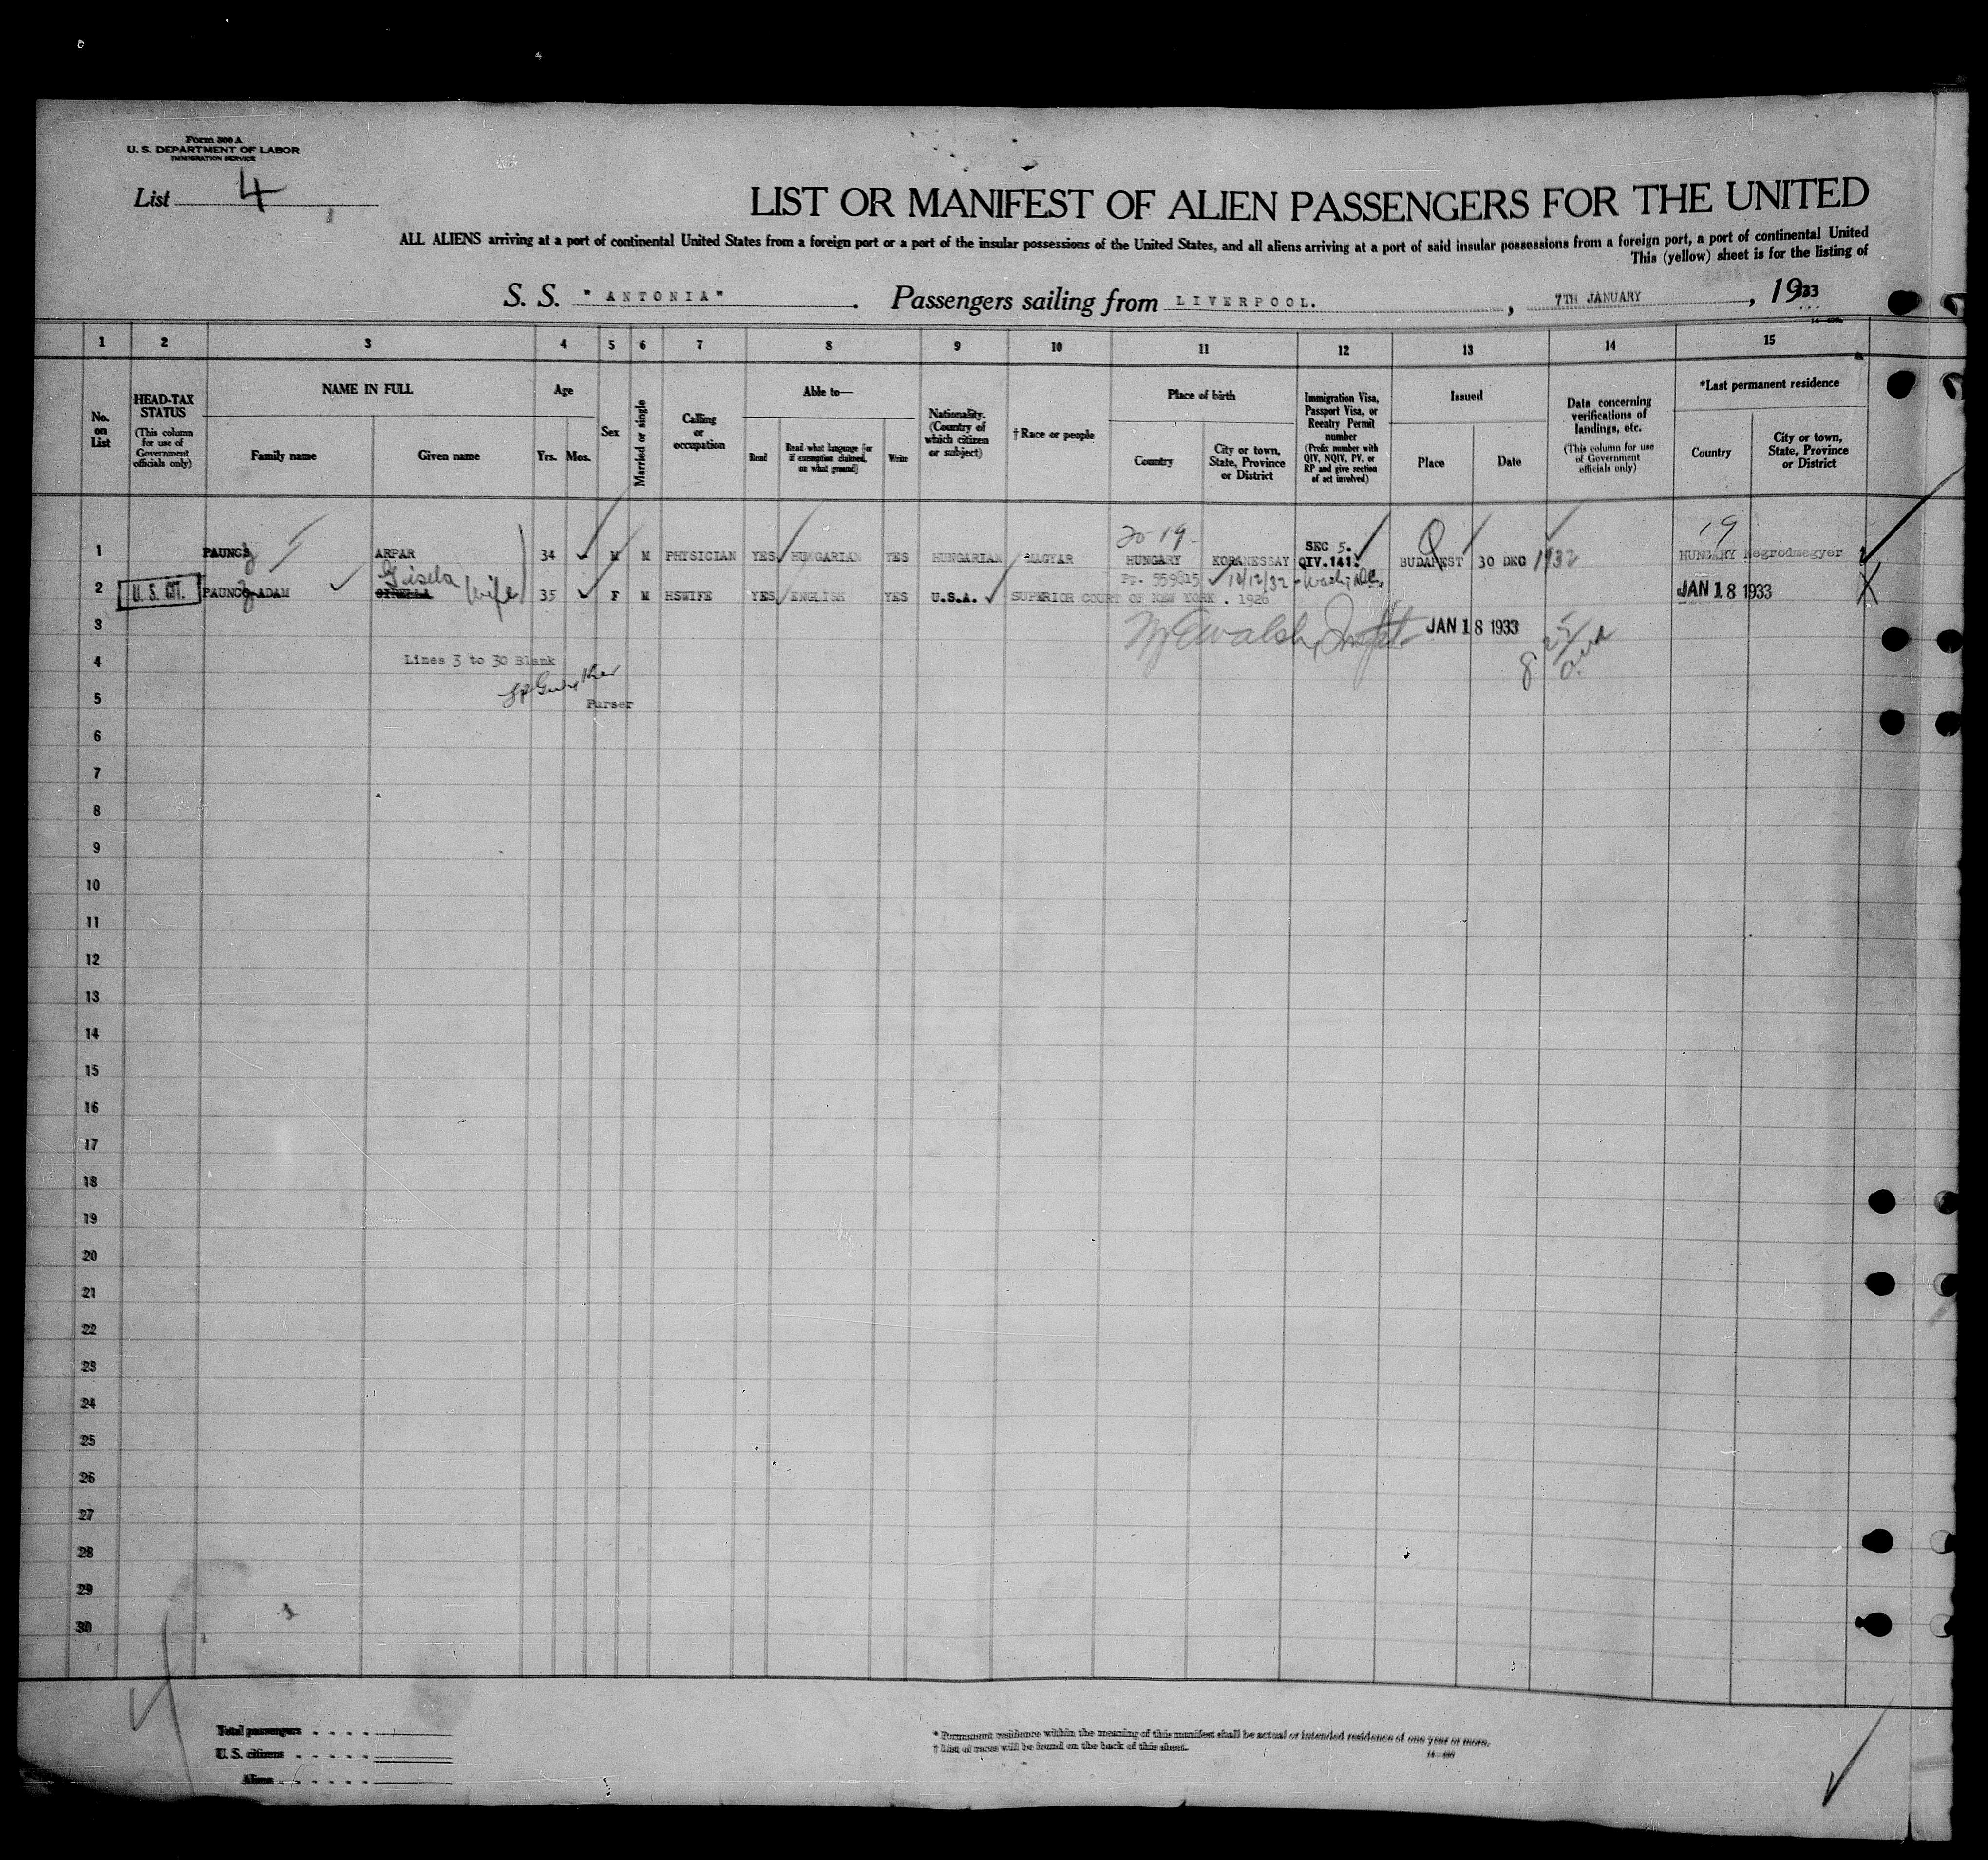 Form 500 A
U. S. DEPARTMENT OF LABOR
IMMIGRATION SERVICE
List 4
LIST OR MANIFEST OF ALIEN PASSENGERS FOR THE UNITED
ALL ALIENS arriving at a port of continental United States from a foreign port or a port of the insular possessions of the United States, and all aliens arriving at a port of said insular possessions from a foreign port, a port of continental United
This (yellow) sheet is for the listing of
S. S. "ANTONIA". Passengers sailing from LIVERPOOL., 7TH JANUARY, 1933
1 2 3 4 5 6 7 8 9 10 11 12 13 14 15
No. on List
HEAD-TAX STATUS (This column for use of Government officials only)
NAME IN FULL
Family name
Given name
Age
Yrs. Mos.
Sex
Married or single
Calling or occupation
Able to—
Read
Read what language [or if exemption claimed, on what ground]
Write
Nationality. (Country of which citizen or subject)
†Race or people
Place of birth
Country
City or town, State, Province or District
Immigration Visa, Passport Visa, or Reentry Permit number (Prefix number with QIV, NQIV, PV, or RP and give section of act involved)
Issued
Place
Date
Data concerning verifications of landings, etc. (This column for use of Government officials only)
*Last permanent residence
Country
City or town, State, Province or District
20-19-
19
1 PAUNCZ ARPAR 34 M M PHYSICIAN YES HUNGARIAN YES HUNGARIAN MAGYAR HUNGARY KORANESSAY SEC 5. QIV.141. BUDAPEST 30 DEC 1932 HUNGARY Negrodmegyer
Gisela wife
PP. 559615 12/12/32 - Wash, D.C.
2 U. S. CIT. PAUNCZ ADAM 35 F M HSWIFE YES ENGLISH YES U.S.A. SUPERIOR COURT OF NEW YORK. 1926 JAN 18 1933
3 Walsh, JAN 18 1933
4 Lines 3 to 30 Blank
5 Purser
6
7
8
9
10
11
12
13
14
15
16
17
18
19
20
21
22
23
24
25
26
27
28
29
30
Total passengers
U. S. citizens
Aliens
* Permanent residence within the meaning of this manifest shall be actual or intended residence of one year or more.
† List of races will be found on the back of this sheet.